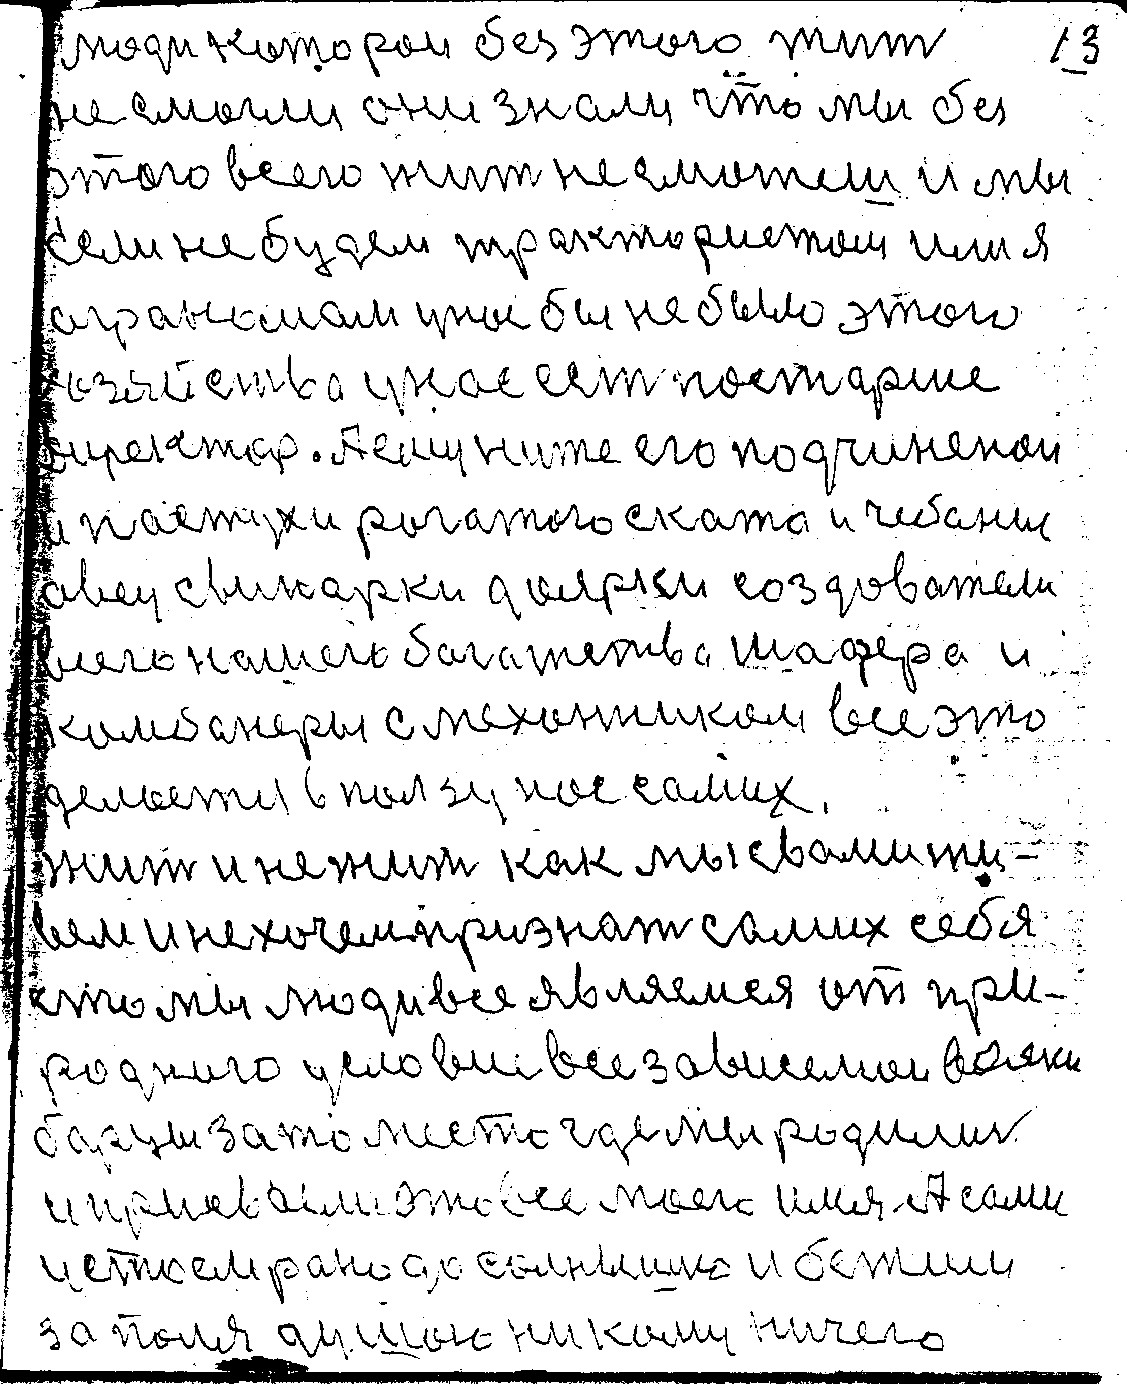 люди которои без этого жит 13
не смогли они знали что мы без
этого всего жит не сможеш и мы
если не будем трактористом или я
аграномам у нас бы не было этого
хозяйства у нас ест постарше
директор. А ему ниже его подчиненои
и пастухи рогатого ската и чебаны
овец свинарки доярки создователи
всего нашего богатетва шафера и
комбанеры с механиком все это
делаети в ползу нас самих.
жит и не жит как мы свами жи-
вем и не хочем признат самих себя
кто мы люди все являемся от при-
родниго условии все зависемои
за то место где мы родилис
и присвоили это все моего имя. А сами
устаем рано до солнышко и бежим
за поля душою никому ничего